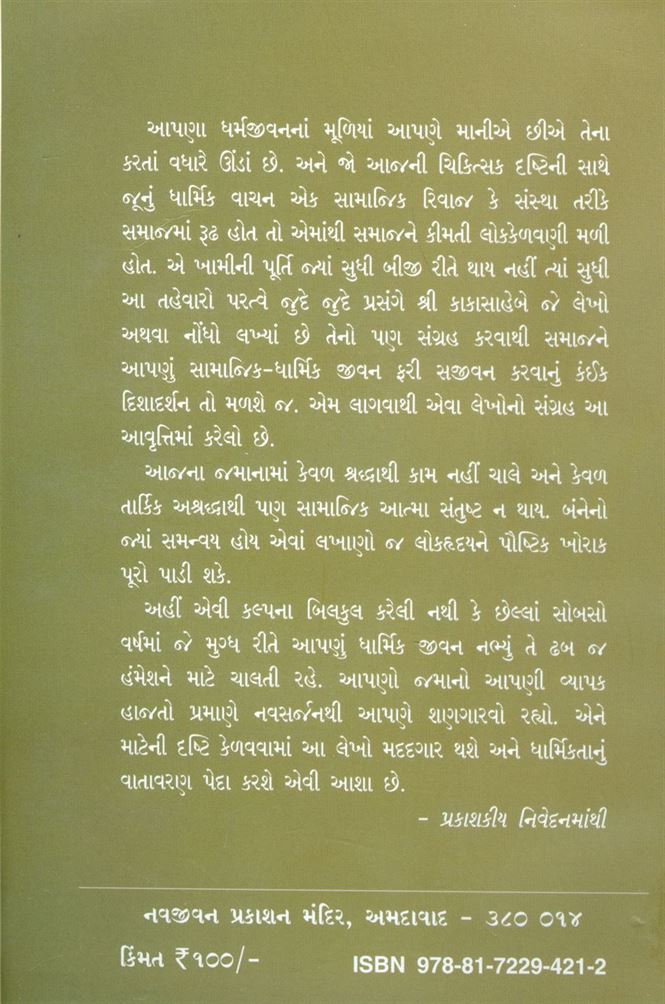 આપણા ધર્મજીવનનાં મૂળિયાં આપણે માનીએ છીએ તેના
કરતાં વધારે ઊંડાં છે. અને જો આજની ચિકિત્સક દૃષ્ટિની સાથે
જૂનું ધાર્મિક વાચન એક સામાજિક રિવાજ કે સંસ્થા તરીકે
સમાજમાં રૂઢ હોત તો એમાંથી સમાજને કીમતી લોકકેળવણી મળી
હોત. એ ખામીની પૂર્તિ જ્યાં સુધી બીજી રીતે થાય નહીં ત્યાં સુધી
આ તહેવારો પરત્વે જુદે જુદે પ્રસંગે શ્રી કાકાસાહેબે જે લેખો
અથવા નોંધો લખ્યાં છે તેનો પણ સંગ્રહ કરવાથી સમાજને
આપણું સામાજિક-ધાર્મિક જીવન ફરી સજીવન કરવાનું કંઈક
દિશાદર્શન તો મળશે જ. એમ લાગવાથી એવા લેખોનો સંગ્રહ આ
આવૃત્તિમાં કરેલો છે.
આજના જમાનામાં કેવળ શ્રદ્ધાથી કામ નહીં ચાલે અને કેવળ
તાર્કિક અશ્રદ્ધાથી પણ સામાજિક આત્મા સંતુષ્ટ ન થાય. બંનેનો
જ્યાં સમન્વય હોય એવાં લખાણો જ લોકહૃદયને પૌષ્ટિક ખોરાક
પૂરો પાડી શકે.
અહીં એવી કલ્પના બિલકુલ કરેલી નથી કે છેલ્લાં સોબસો
વર્ષમાં જે મુગ્ધ રીતે આપણું ધાર્મિક જીવન નભ્યું તે ઢબ જ
હંમેશને માટે ચાલતી રહે. આપણો જમાનો આપણી વ્યાપક
હાજતો પ્રમાણે નવસર્જનથી આપણે શણગારવો રહ્યો. એને
માટેની દૃષ્ટિ કેળવવામાં આ લેખો મદદગાર થશે અને ધાર્મિકતાનું
વાતાવરણ પેદા કરશે એવી આશા છે.
– પ્રકાશકીય નિવેદનમાંથી
નવજીવન પ્રકાશન મંદિર, અમદાવાદ – ૩૮૦ ૦૧૪
કિંમત ₹ ૧૦૦/-
ISBN 978-81-7229-421-2